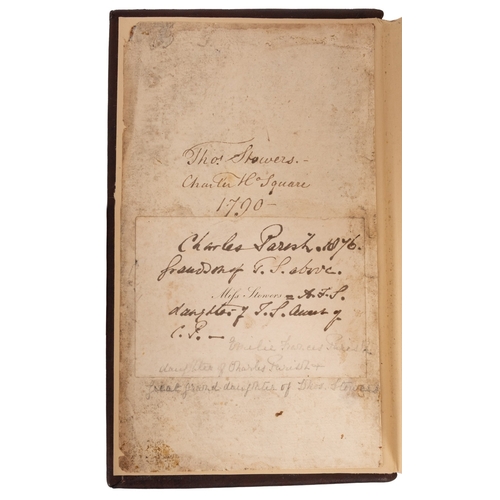 Thos. Stowers.-
Charter Ho Square
1790-
Charles Parish. 1876.
grandson of T. S. above.
Miss Stowers = A. T. S.
daughter of T. S. Aunt of
C. P. -
Emilie Frances Parish
daughter of Charles Parish &
great grand daughter of Thos. Stowers